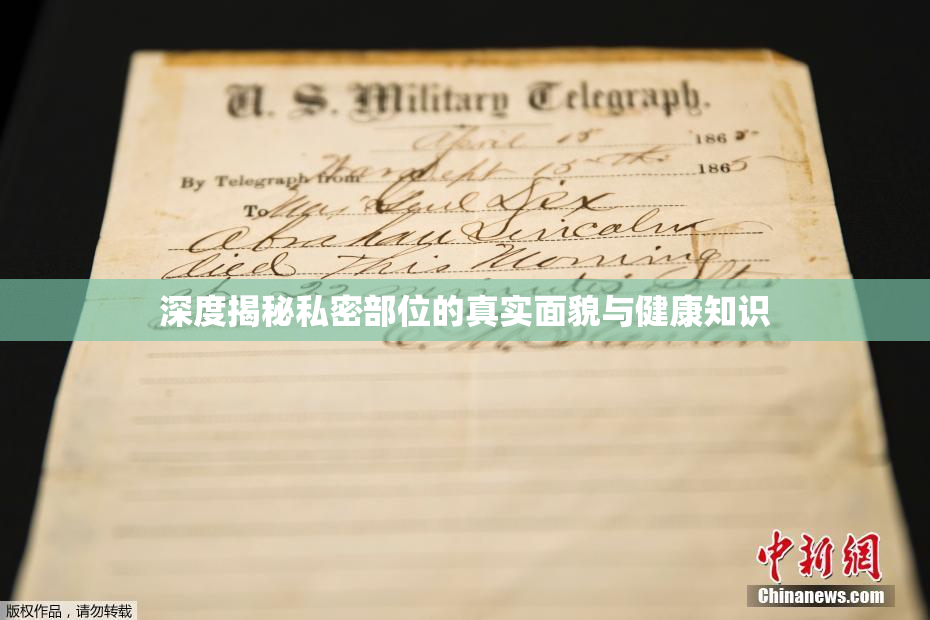 U. S. Military Telegraph.
April 15 1865
By Telegraph from War Dept 15th 1865
To Maj Genl Dix
Abraham Lincoln
died This Morning
at 22 minutes after
深度揭秘私密部位的真实面貌与健康知识
E. M. Stanton
中新网
Chinanews.com
版权作品,请勿转载